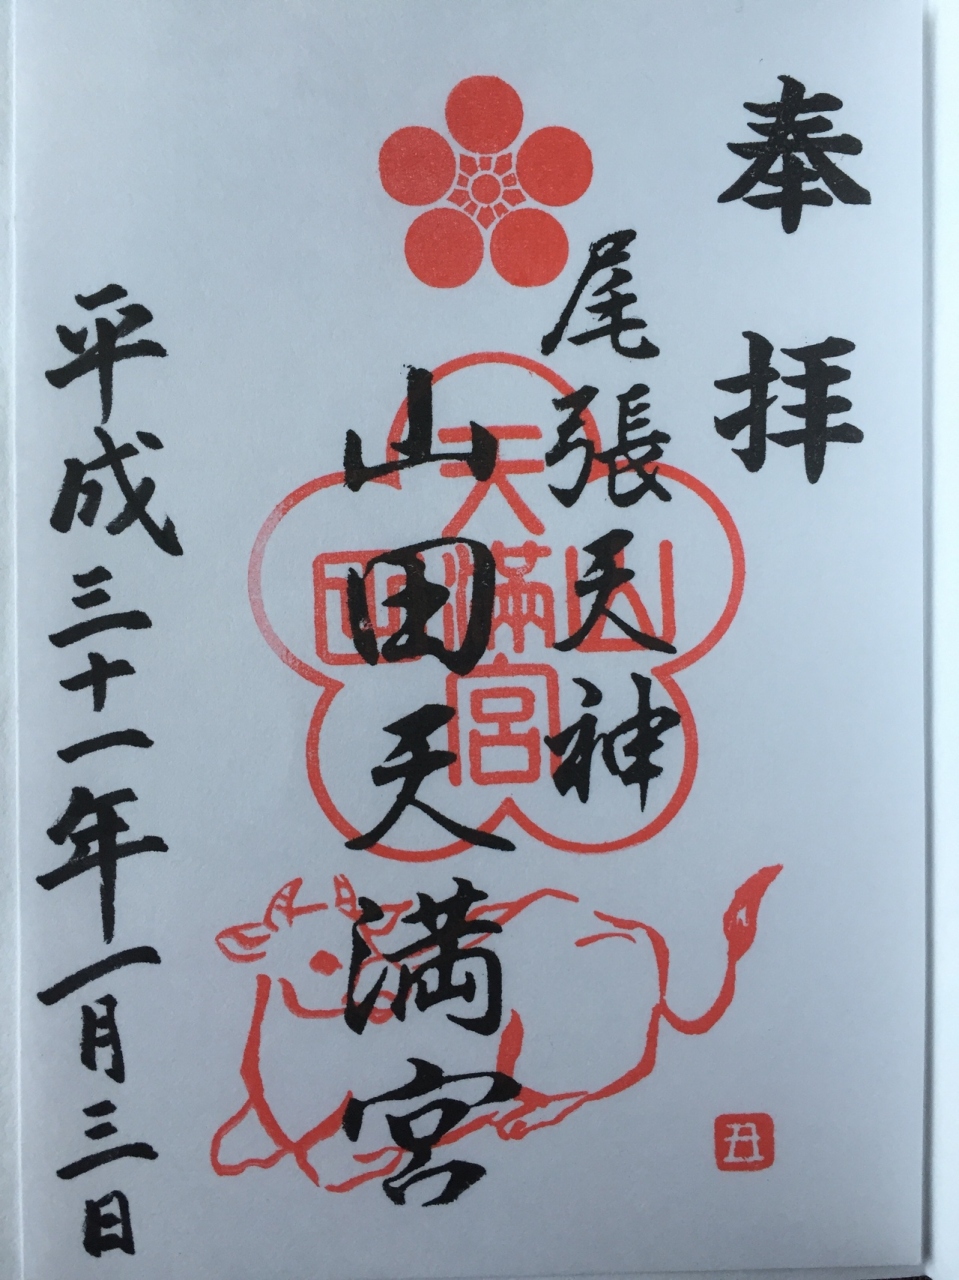 奉拝
尾張天神
山田天満宮
山田天満宮
平成三十一年一月三日
丑